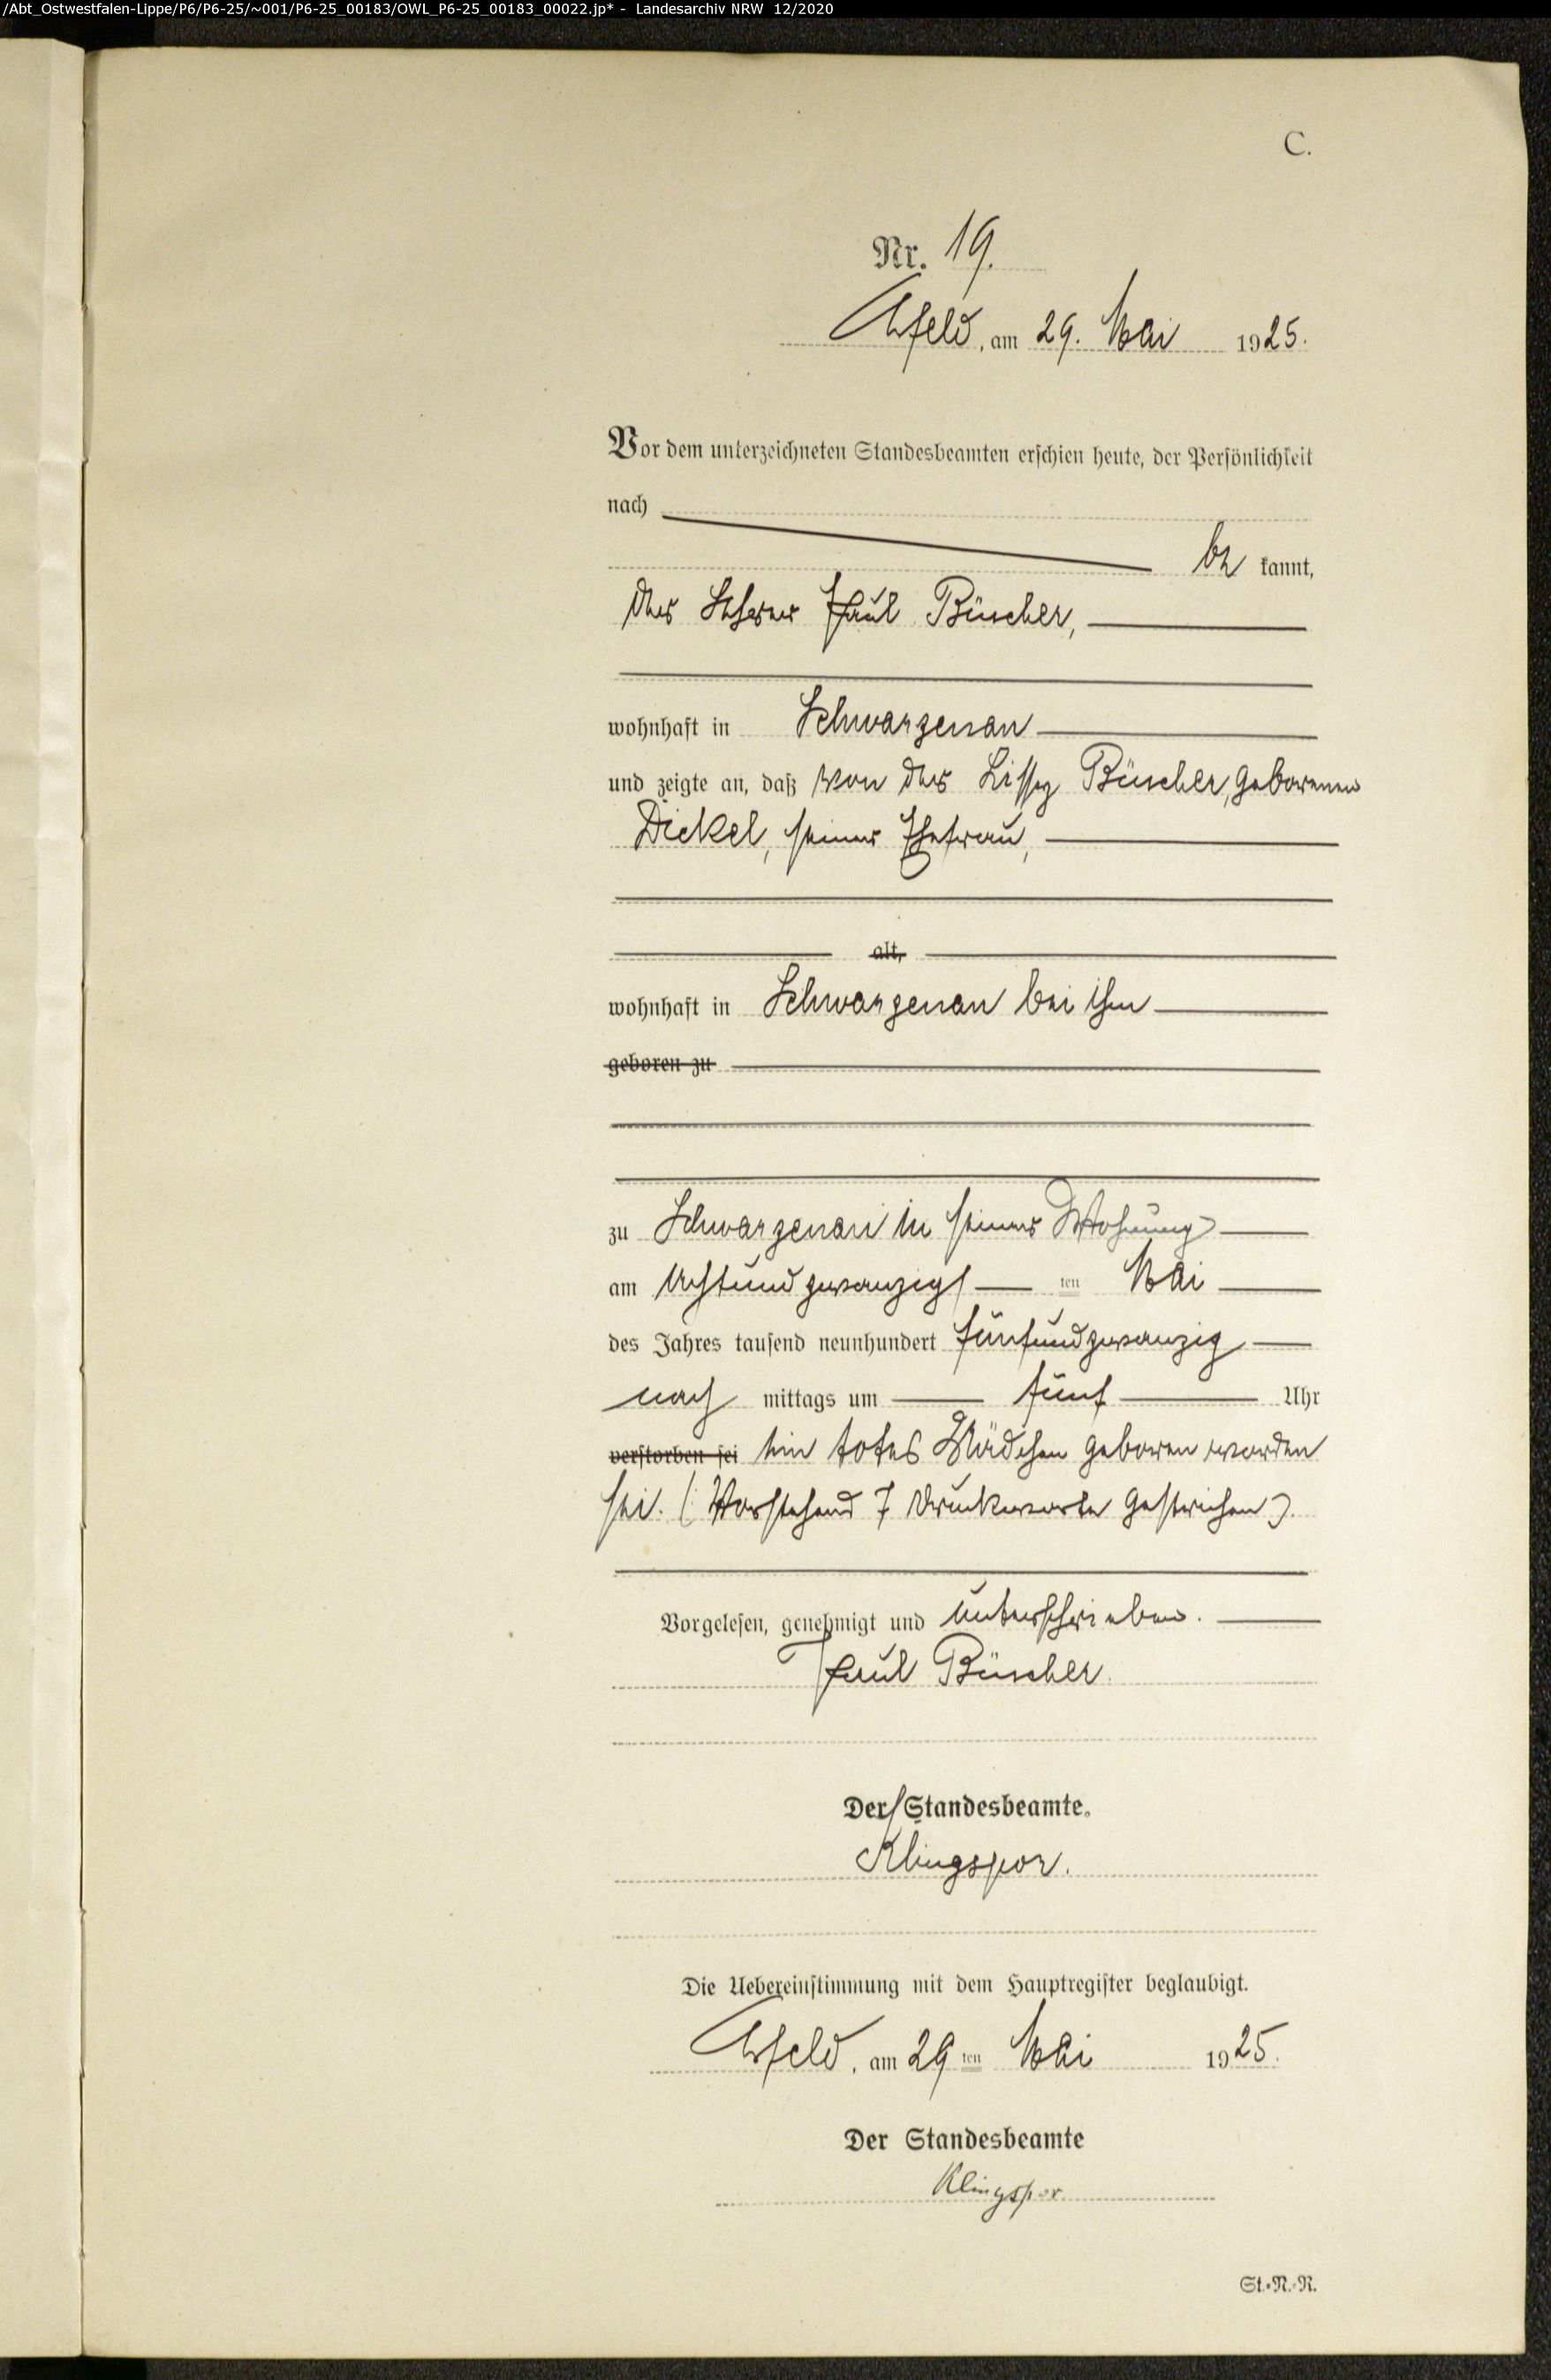 /Abt_Ostwestfalen-Lippe/P6/P6-25/~001/P6-25_00183/OWL_P6-25_00183_00022.jp* - Landesarchiv NRW 12/2020
C.
Nr. 19.
Arfeld, am 29. Mai 1925.
Vor dem unterzeichneten Standesbeamten erschien heute, der Persönlichkeit
nach
be kannt,
der Lehrer Paul Büscher,
wohnhaft in Schwarzenau
und zeigte an, daß von der Lissy Büscher, geborenen
Dickel, seiner Ehefrau,
alt,
wohnhaft in Schwarzenau bei ihm
geboren zu
zu Schwarzenau in seiner Wohnung
am achtundzwanzigs ten Mai
des Jahres tausend neunhundert fünfundzwanzig
nach mittags um fünf Uhr
verstorben sei ein totes Mädchen geboren worden
sei. (Vorstehend 7 Druckworte gestrichen).
Vorgelesen, genehmigt und unterschrieben.
Paul Büscher.
Der Standesbeamte.
Klingspor.
Die Uebereinstimmung mit dem Hauptregister beglaubigt.
Arfeld, am 29 ten Mai 1925.
Der Standesbeamte
Klingspor
St.-N.-R.